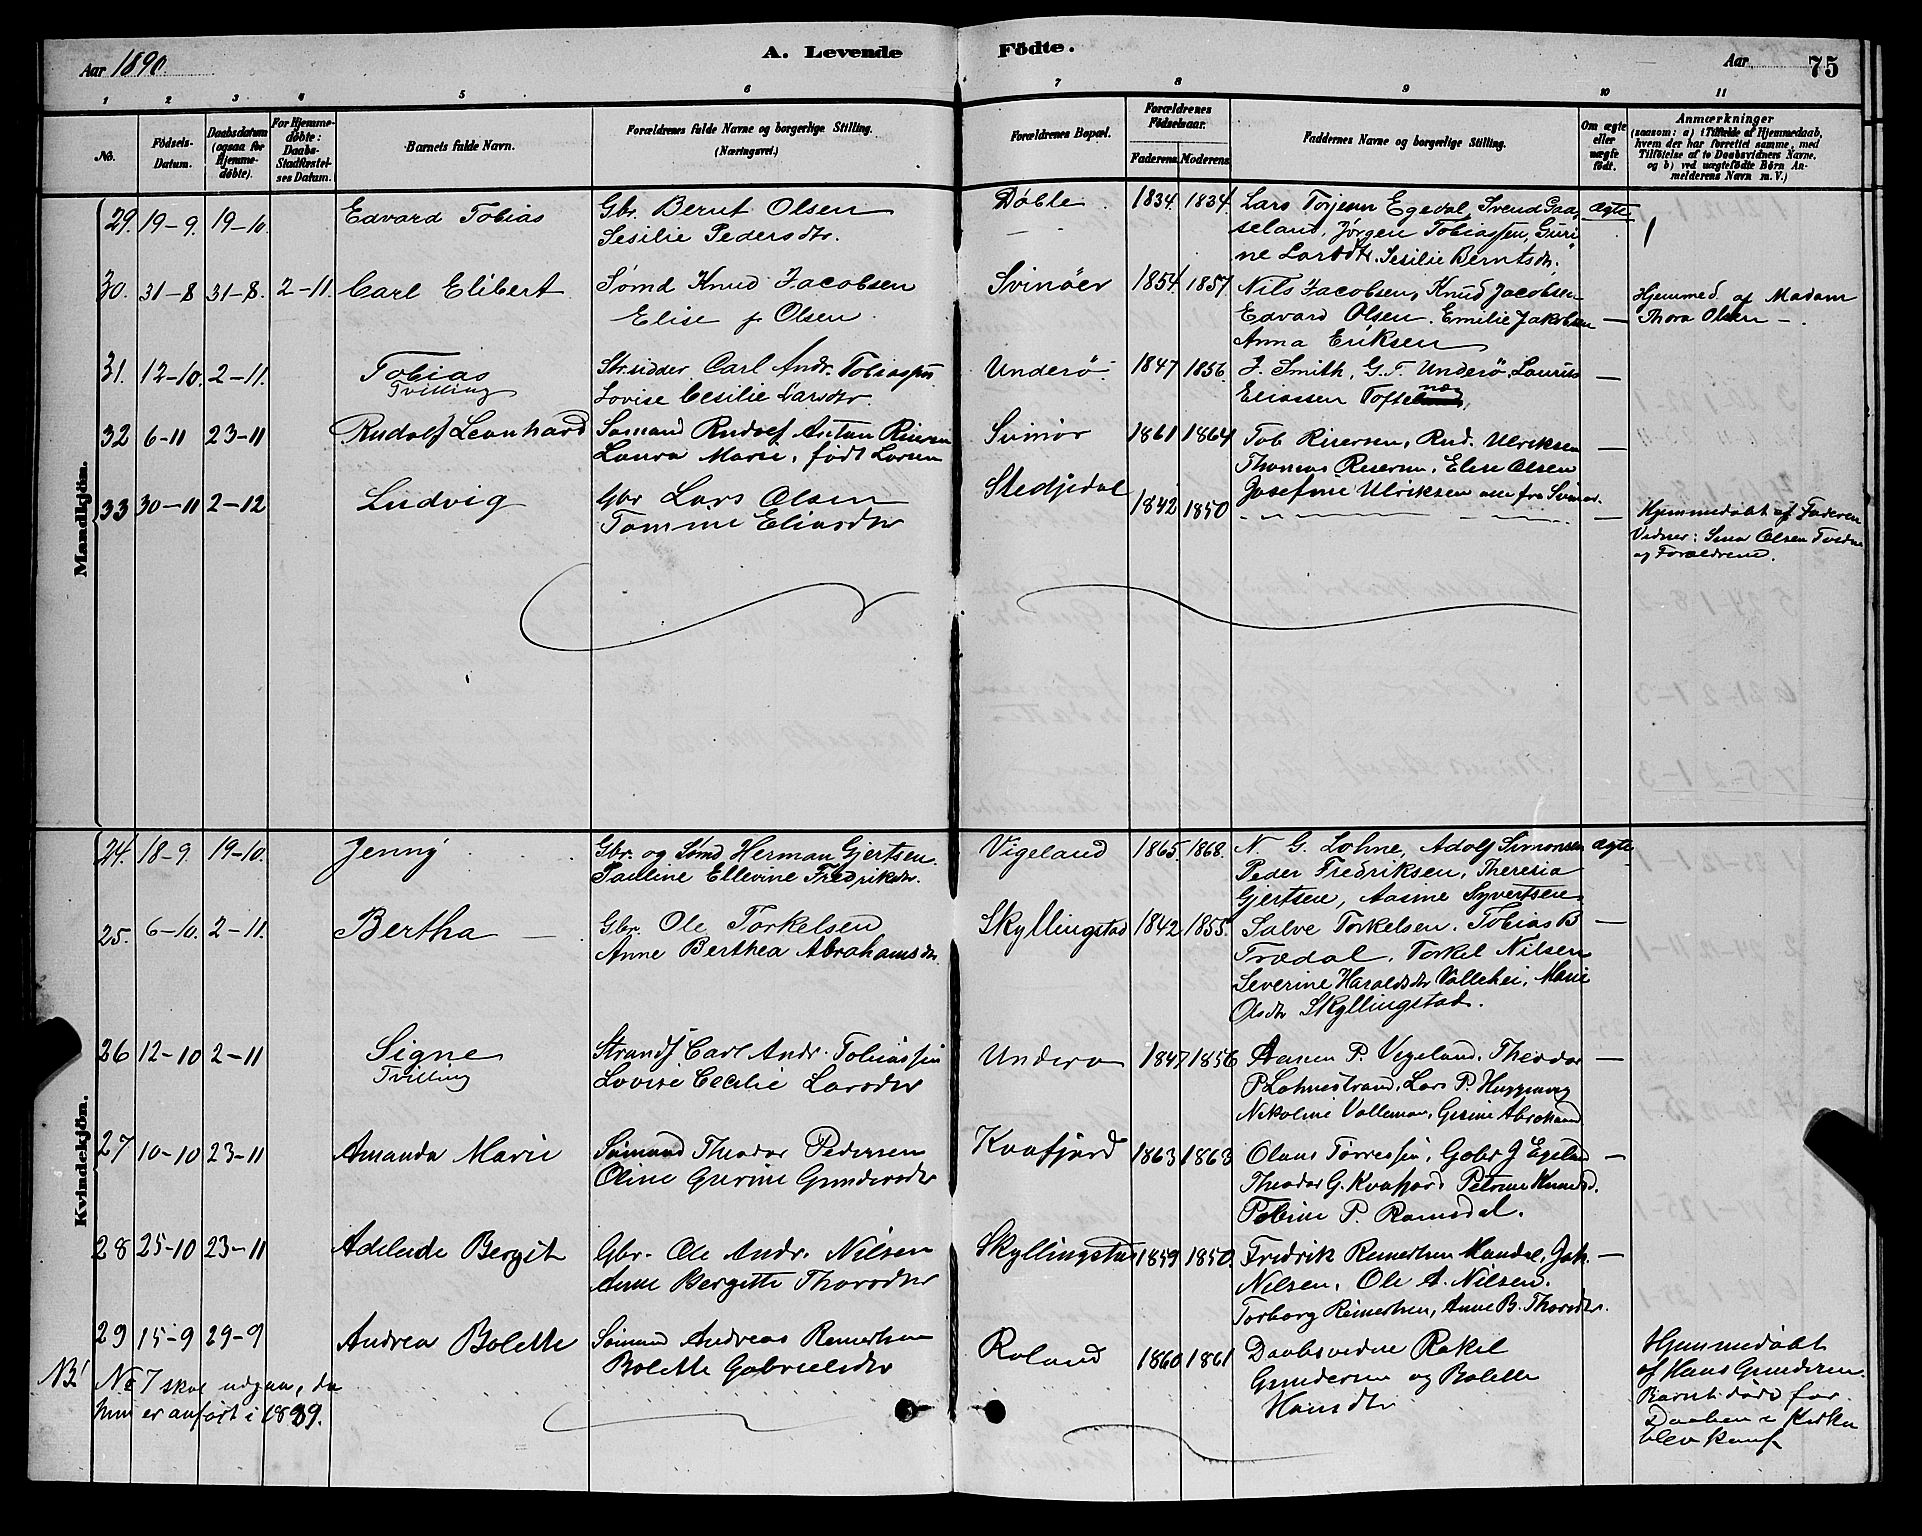 Aar 1890. A. Levende Födte. Aar 75
1 2 3 4 5 6 7 8 9 10 11
No. Födsels-Datum. Daabsdatum (ogsaa for Hjemmedöbte). For Hjemmedöbte: Daabs-Stadfæstelses Datum. Barnets fulde Navn. Forældrenes fulde Navne og borgerlige Stilling. (Næringsvei.) Forældrenes Bopæl. Forældrenes Födselsaar. Faderens. Moderens. Faddernes Navne og borgerlige Stilling. Om ægte eller uægte födt. Anmærkninger (saasom: a) i Tilfælde af Hjemmedaab, hvem der har forrettet samme, med Tilföielse af to Daabsvidners Navne, og b) ved uægtefödte Börn Anmelderens Navn m. V.)
Mandkjön.
29. 19-9. 19-10. Edvard Tobias Gbr. Bernt Olsen Døble 1834. 1834. Lars Torjesen Egedal, Svend Gaa- ægte
Sesilie Pedersdtr. seland, Jørgen Tobiassen, Guri-
ne Larsdtr. Sesilie Berntsdtr.
30. 31-8 31-8. 2-11. Carl Elibert Sømd Knud Jacobsen Svinøer 1854. 1857 Nils Jacobsen, Knud Jacobsen Hjemmed. af Madam
Elise f. Olsen. Edvard Olsen. Emilie Jakobsen — Thora Olsen —.
Anna Eriksen
31. 12-10. 2-11. Tobias Str.sidder Carl Andr. Tobiassen Underö 1847 1856. J. Smith, G. T. Underö, Laurits —
Tvilling Lovise Cesilie Larsdtr. Eliassen Tofte
32 6-11 23-11 Rudolf Leonhard Sømand Rudolf Anton Svinør 1861 1864 Tob. Risersen, Rud. Ulriksen —
Laura Marie, født Larsen Thomas Risersen, Elise Olsen
33 30-11 2-12 Ludvig Gbr Lars Olsen Stedjedal 1842 1850 Josefine Ulriksen alle fra Svinør. —
Tomine Eliasdtr Hjemmedøbt af Faderen
Vidner: Olsen
og Forældrene.
Kvindekjön.
24. 18-9. 19-10. Jenny Gbr. og Sømd Herman Gjertsen. Vigeland 1865. 1868. N. G. Lohne, Adolf Simonsen ægte
Pauline Ellevine Fredriksdtr. Peder Fredriksen, Theresia
Gjertsen, Aasine Syvertsen
25. 6-10. 2-11. Bertha Gbr. Ole Torkelsen Skyllingstad 1842 1855. Salve Torkelsen. Tobias B —
Anne Berthea Abrahamsdtr. Trædal, Torkel Nilsen
Severine Haraldsdtr Vallehei, Marie
Olsdtr Skyllingstad.
26 12-10 2-11 Signe Strands Carl Andr. Tobiassen Underø 1847 1856 Aanen P. Vigeland, Theodor —
Tvilling Lovise Cecilie Larsdtr P. Lohnestrand, Lars P.
Nikoline Vallemoen,
27 10-10 23-11 Amanda Marie Sømand Theodor Pedersen Kvafjord 1863 1863 Olaus Torressen, Gabr J Egeland —
Oline Gurine Gundersdtr Theodor G. Kvafjord
Tobine P. Ramsdal.
28 25-10 23-11 Adelaide Bergit Gbr. Ole Andr. Nilsen Skyllingstad 1859 1850. Fredrik Remertsen Mandal, Joh. —
Anne Bergitte Thorsdtr Nilsen, Ole A. Nilsen.
Torborg Remertsen, Anne B. Thorsdtr.
29 15-9 29-9 Andrea Bolette Sømand Andreas Remertsen Roland 1860 1861 Daabsvidne Rakel Hjemmedøbt
Bolette Gabrielsdtr Gundersen og Bolette af Hans Gundersen.
Hansdtr Barnet døde før
Daaben i Kirken
blev
NB! No 7 skal udgaa, da
hun er anført i 1889.